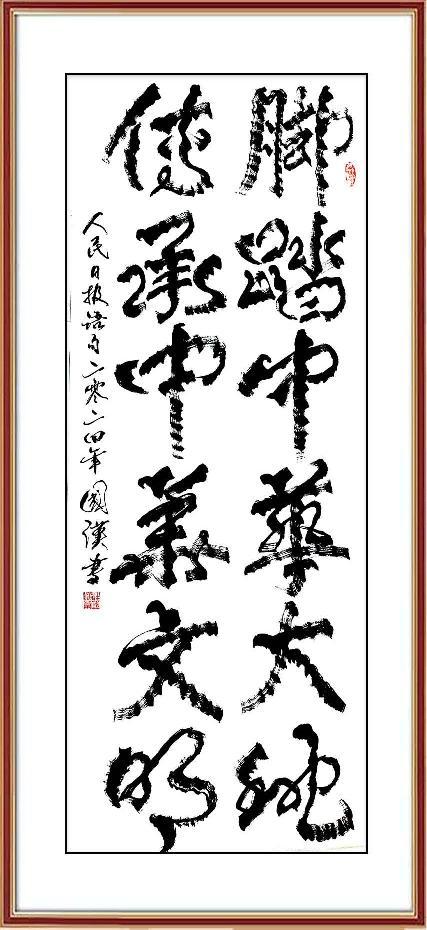 脚踏中华大地
传承中华文明
人民日报语句二零二四年 国汉书